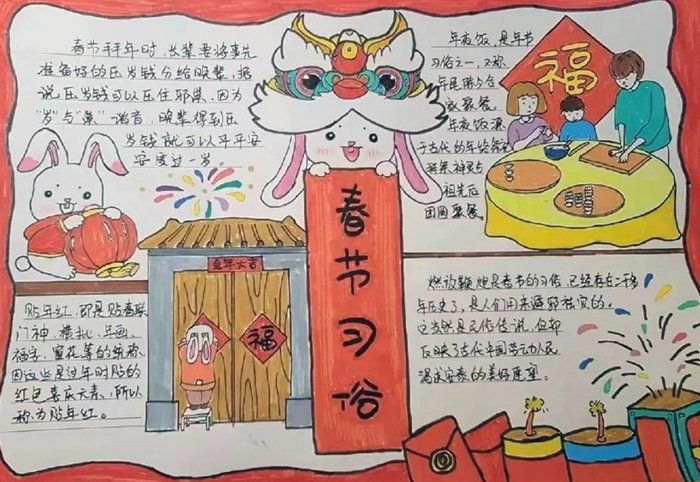 春节拜年时,长辈要将事先
准备好的压岁钱分给晚辈,据
说压岁钱可以压住邪祟,因为
"岁"与"祟"谐音,晚辈得到压
岁钱就可以平平安
安度过一岁。
年夜饭,是年节
习俗之一,又称
年晚饭
团年饭
年夜饭源
于古代的年终祭祀
拜祭神灵与
祖先后
团圆聚餐
福
春节习俗
兔年大吉
福
贴年红,即是贴春联
门神、横批、年画、
福字、窗花等的统称。
因这些是过年时贴的
红色喜庆元素,所以
称为贴年红。
燃放鞭炮是春节的习俗,已经存在二千多
年历史了,是人们用来避邪祛灾的。
这当然是民俗传说,但却
反映了古代中国劳动人民
渴求安泰的美好愿望。